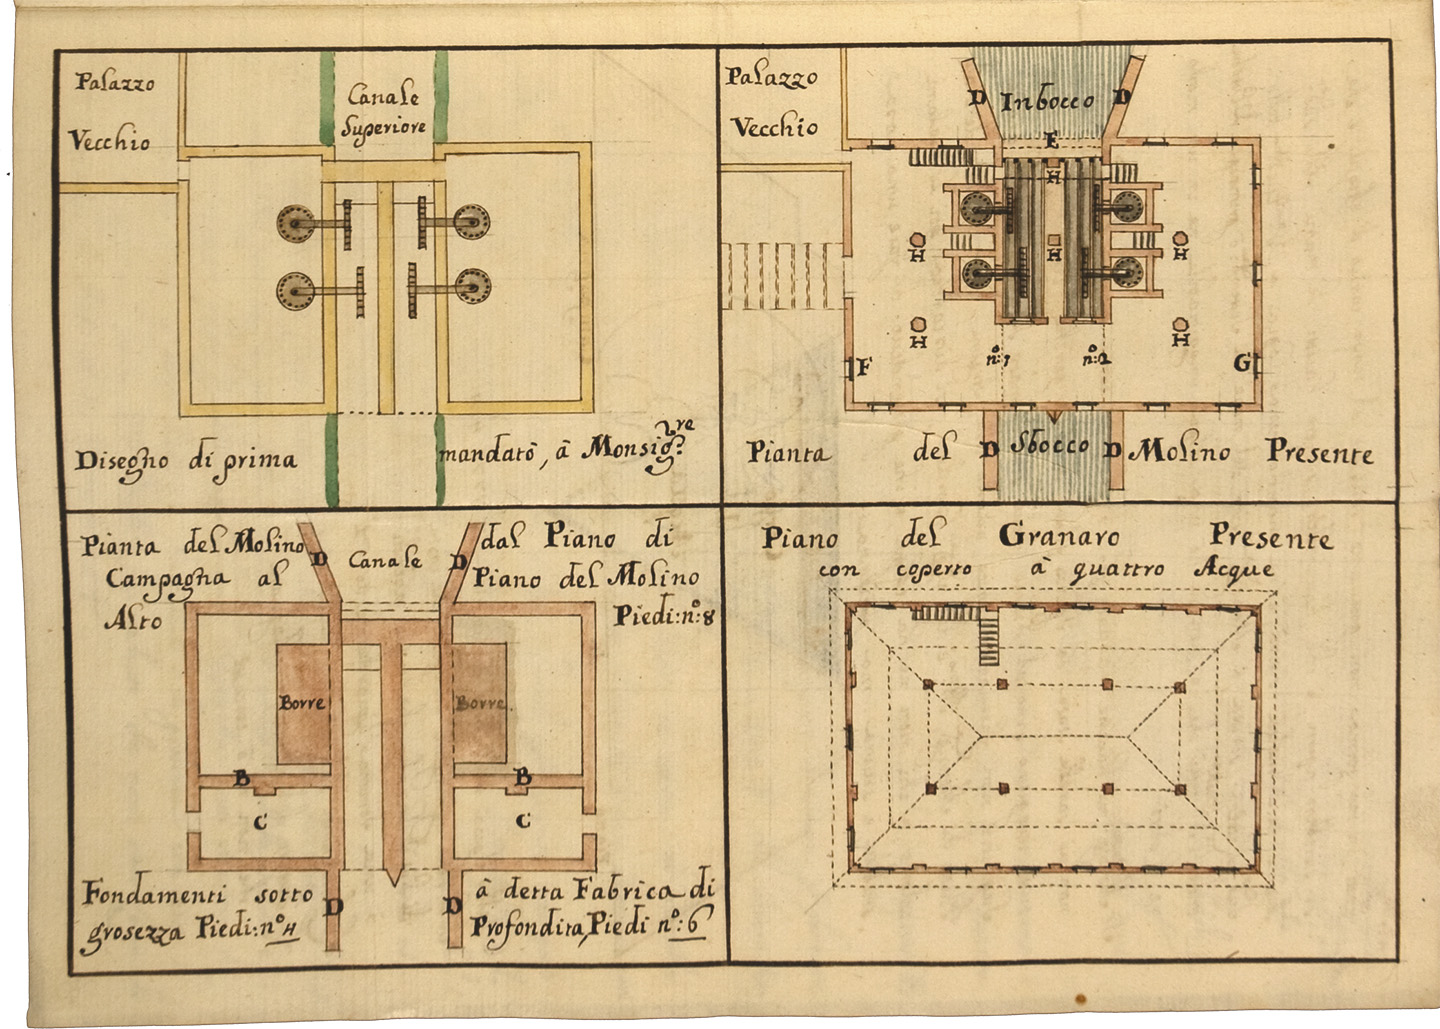 Palazzo
Vecchio
Canale
Superiore
Disegno di prima mandato, à Monsig:re
Palazzo
Vecchio
D Inbocco D
E
H
H
H H
H H
n:o1 n:o2
F G
Pianta del D Sbocco D Molino Presente
Pianta del Molino D Canale D dal Piano di
Campagna al Piano del Molino
Alto Piedi:n:o8
Borre Borre.
B B
C C
Fondamenti sotto à detta Fabrica di
D D
grosezza Piedi:n:o4 Profondita, Piedi n:o6
Piano del Granaro Presente
con coperto à quattro Acque